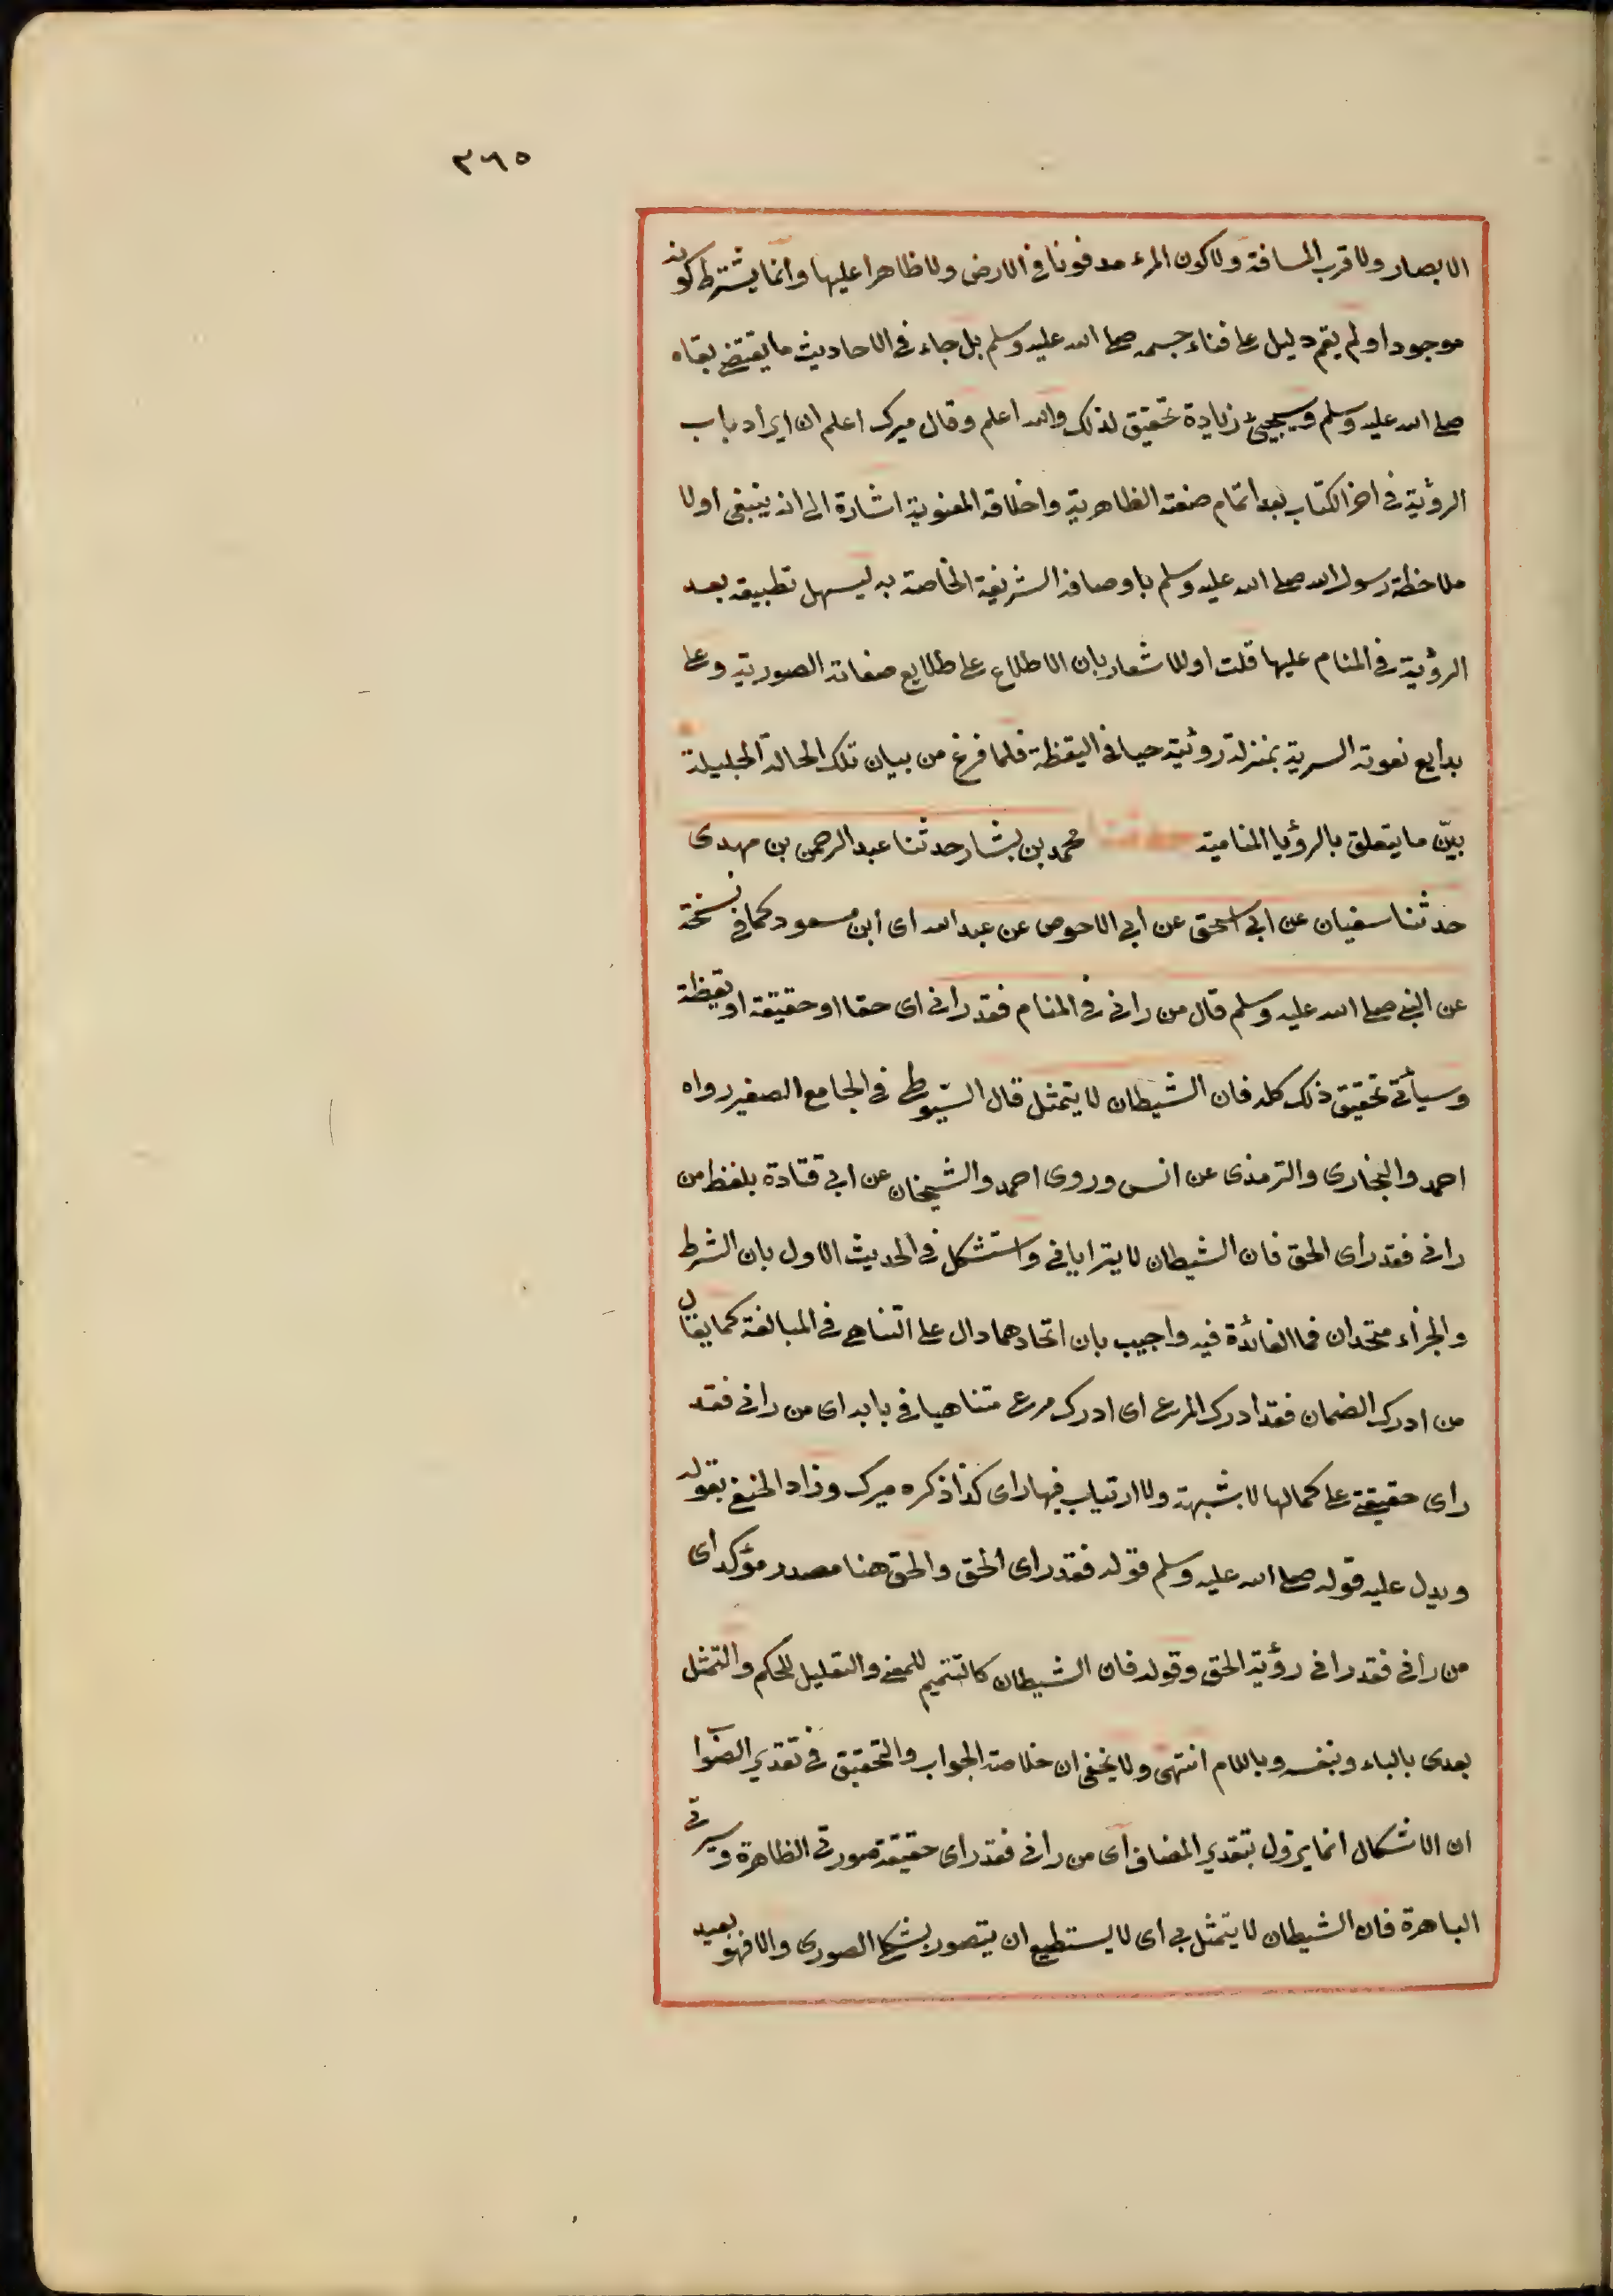 ٣٦٥
الابصار ولا قرب المسافة ولا كون المرء مدفونا في الارض ولا ظاهرا عليها وانما يشترط كونه
موجودا ولم يقم دليل على فناء جسمه صلى الله عليه وسلم بل جاء في الاحاديث ما يقتضى بقاه
صلى الله عليه وسلم وسيجئ زيادة تحقيق لذلك والله اعلم وقال ميرك اعلم ان ايراد باب
الرؤية في اخر الكتاب بعد اتمام صفته الظاهرية واخلاقه المعنوية اشارة الى انه ينبغى اولا
ملاحظة رسول الله صلى الله عليه وسلم باوصافه الشريفة الخاصة به ليسهل تطبيقه بعد
الرؤية في المنام عليها قلت او للاشعار بان الاطلاع على طلايع صفاته الصورية وعلى
بدايع نعوته السرية بمنزلة رؤيته حيا في اليقظة فلما فرغ من بيان تلك الحالة الجليلة
بيّن ما يتعلق بالرؤيا المنامية حدثنا محمد بن بشار حدثنا عبد الرحمن بن مهدى
حدثنا سفيان عن ابي اسحق عن ابي الاحوص عن عبد الله اى ابن مسعود كما في نسخة
عن النبي صلى الله عليه وسلم قال من رانى في المنام فقد رانى اى حقا او حقيقة او يقظة
وسيأتى تحقيق ذلك كله فان الشيطان لا يتمثل قال السّيوطى في الجامع الصغير رواه
احمد والبخارى والترمذى عن انس وروى احمد والشيخان عن ابي قتادة بلفظ من
رانى فقد رأى الحق فان الشيطان لا يترايانى واستشكل في الحديث الاول بان الشرط
والجزاء متحدان فما الفائدة فيه واجيب بان اتحادهما دال على التناهى في المبالغة كما يقال
من ادرك الضمان فقد ادرك المرعى اى ادرك مرعى متناهيا في بابه اى من رانى فقد
راى حقيقتى على كمالها لا شبهة ولا ارتياب فيها راى كذا ذكره ميرك وزاد الحنفى بقوله
ويدل عليه قوله صلى الله عليه وسلم قوله فقد راى الحق والحق هنا مصدر مؤكد اى
من رانى فقد رانى رؤية الحق وقوله فان الشيطان كالتتميم للمعنى والتعليل للحكم والتمثل
يعدى بالباء وبنفسه وباللام انتهى ولا يخفى ان خلاصة الجواب والتحقيق في تقدير الصواب
ان الاشكال انما يزول بتقدير المضاف اى من رانى فقد راى حقيقة صورتى الظاهرة وسيرتى
الباهرة فان الشيطان لا يتمثل بى اى لا يستطيع ان يتصور بشكلى الصورى والا فهو بعيد